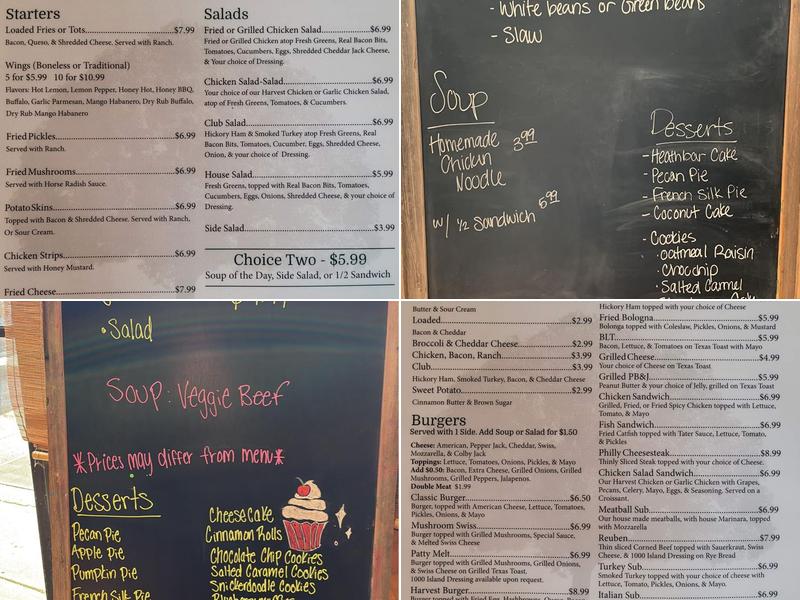 Starters
Loaded Fries or Tots...$7.99
Bacon, Queso, & Shredded Cheese. Served with Ranch.
Wings (Boneless or Traditional)
5 for $5.99 10 for $10.99
Flavors: Hot Lemon, Lemon Pepper, Honey Hot, Honey BBQ,
Buffalo, Garlic Parmesan, Mango Habanero, Dry Rub Buffalo,
Dry Rub Mango Habanero
Fried Pickles...$6.99
Served with Ranch.
Fried Mushrooms...$6.99
Served with Horse Radish Sauce.
Potato Skins...$6.99
Topped with Bacon & Shredded Cheese. Served with Ranch,
Or Sour Cream.
Chicken Strips...$6.99
Served with Honey Mustard.
Fried Cheese...$7.99
Salads
Fried or Grilled Chicken Salad...$6.99
Fried or Grilled Chicken atop Fresh Greens, Real Bacon Bits,
Tomatoes, Cucumbers, Eggs, Shredded Cheddar Jack Cheese,
& Your choice of Dressing.
Chicken Salad-Salad...$6.99
Your choice of our Harvest Chicken or Garlic Chicken Salad,
atop of Fresh Greens, Tomatoes, & Cucumbers.
Club Salad...$6.99
Hickory Ham & Smoked Turkey atop Fresh Greens, Real
Bacon Bits, Tomatoes, Cucumber, Eggs, Shredded Cheese,
Onion, & your choice of Dressing.
House Salad...$5.99
Fresh Greens, topped with Real Bacon Bits, Tomatoes,
Cucumbers, Eggs, Onions, Shredded Cheese, & your choice of
Dressing.
Side Salad...$3.99
Choice Two - $5.99
Soup of the Day, Side Salad, or 1/2 Sandwich
- White beans or Green beans
- Slaw
Soup
Homemade 3.99
Chicken
Noodle
w/ 1/2 Sandwich 5.99
Desserts
- Heathbar Cake
- Pecan Pie
- French Silk Pie
- Coconut Cake
- Cookies
· oatmeal Raisin
· Chocchip
· Salted Carmel
• Salad
Soup: Veggie Beef
*Prices may differ from menu*
Desserts
Pecan Pie
Apple Pie
Pumpkin Pie
French Silk Pie
Cheesecake
Cinnamon Rolls
Chocolate Chip Cookies
Salted Caramel Cookies
Snickerdoodle Cookies
Butter & Sour Cream
Loaded...$2.99
Bacon & Cheddar
Broccoli & Cheddar Cheese...$2.99
Chicken, Bacon, Ranch...$3.99
Club...$3.99
Hickory Ham, Smoked Turkey, Bacon, & Cheddar Cheese
Sweet Potato...$2.99
Cinnamon Butter & Brown Sugar
Burgers
Served with 1 Side. Add Soup or Salad for $1.50
Cheese: American, Pepper Jack, Cheddar, Swiss,
Mozzarella, & Colby Jack
Toppings: Lettuce, Tomatoes, Onions, Pickles, & Mayo
Add $0.50: Bacon, Extra Cheese, Grilled Onions, Grilled
Mushrooms, Grilled Peppers, Jalapenos.
Double Meat $1.99
Classic Burger...$6.50
Burger, topped with American Cheese, Lettuce, Tomatoes,
Pickles, Onions, & Mayo
Mushroom Swiss...$6.99
Burger topped with Grilled Mushrooms, Special Sauce,
& Melted Swiss Cheese
Patty Melt...$6.99
Burger topped with Grilled Mushrooms, Grilled Onions,
& Swiss Cheese on Grilled Texas Toast.
1000 Island Dressing available upon request.
Harvest Burger...$8.99
Hickory Ham topped with your choice of Cheese
Fried Bologna...$5.99
Bolonga topped with Coleslaw, Pickles, Onions, & Mustard
BLT...$5.99
Bacon, Lettuce, & Tomatoes on Texas Toast with Mayo
Grilled Cheese...$4.99
Your choice of Cheese on Texas Toast
Grilled PB&J...$5.99
Peanut Butter & your choice of Jelly, grilled on Texas Toast
Chicken Sandwich...$6.99
Grilled, Fried, or Fried Spicy Chicken topped with Lettuce,
Tomato, & Mayo
Fish Sandwich...$6.99
Fried Catfish topped with Tater Sauce, Lettuce, Tomato,
& Pickles
Philly Cheesesteak...$8.99
Thinly Sliced Steak topped with your choice of Cheese.
Chicken Salad Sandwich...$6.99
Our Harvest Chicken or Garlic Chicken with Grapes,
Pecans, Celery, Mayo, Eggs, & Seasoning. Served on a
Croissant.
Meatball Sub...$6.99
Our house made meatballs, with house Marinara, topped
with Mozzarella
Reuben...$7.99
Thin sliced Corned Beef topped with Sauerkraut, Swiss
Cheese, & 1000 Island Dressing on Rye Bread
Turkey Sub...$6.99
Smoked Turkey topped with your choice of cheese with
Lettuce, Tomato, Pickles, Onions, & Mayo.
Italian Sub...$6.99